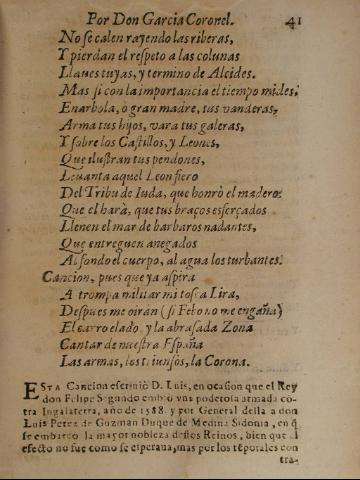 Por Don Garcia Coronel. 41
No se calen rayendo las riberas,
Y pierdan el respeto a las colunas
Llaues tuyas, y termino de Alcides.
Mas si con la importancia el tiempo mides,
Enarbola, ò gran madre, tus vanderas,
Arma tus hijos, vara tus galeras,
Y sobre los Castillos, y Leones,
Que ilustran tus pendones,
Leuanta aquel Leon fiero
Del Tribu de Iuda, que honrò el madero:
Que el harà, que tus braços esforçados
Llenen el mar de barbaros nadantes,
Que entreguen anegados
Al fondo el cuerpo, al agua los turbantes.
Cancion, pues que ya aspira
A trompa militar mi tosca Lira,
Despues me oiran (si Febo no me engaña)
El carro elado, y la abrasada Zona
Cantar de nuestra España
Las armas, los triunfos, la Corona.
ESTA Cancion escriuiò D. Luis, en ocasion que el Rey
don Felipe Segundo embiò vna poderosa armada cõ-
tra Ingalaterra, año de 1588. y por General della a don
Luis Perez de Guzman Duque de Medina Sidonia, en q̃
se embarcò la mayor nobleza destos Reinos, bien que el
efecto no fue como se esperaua, mas por los tẽporales con
tra-